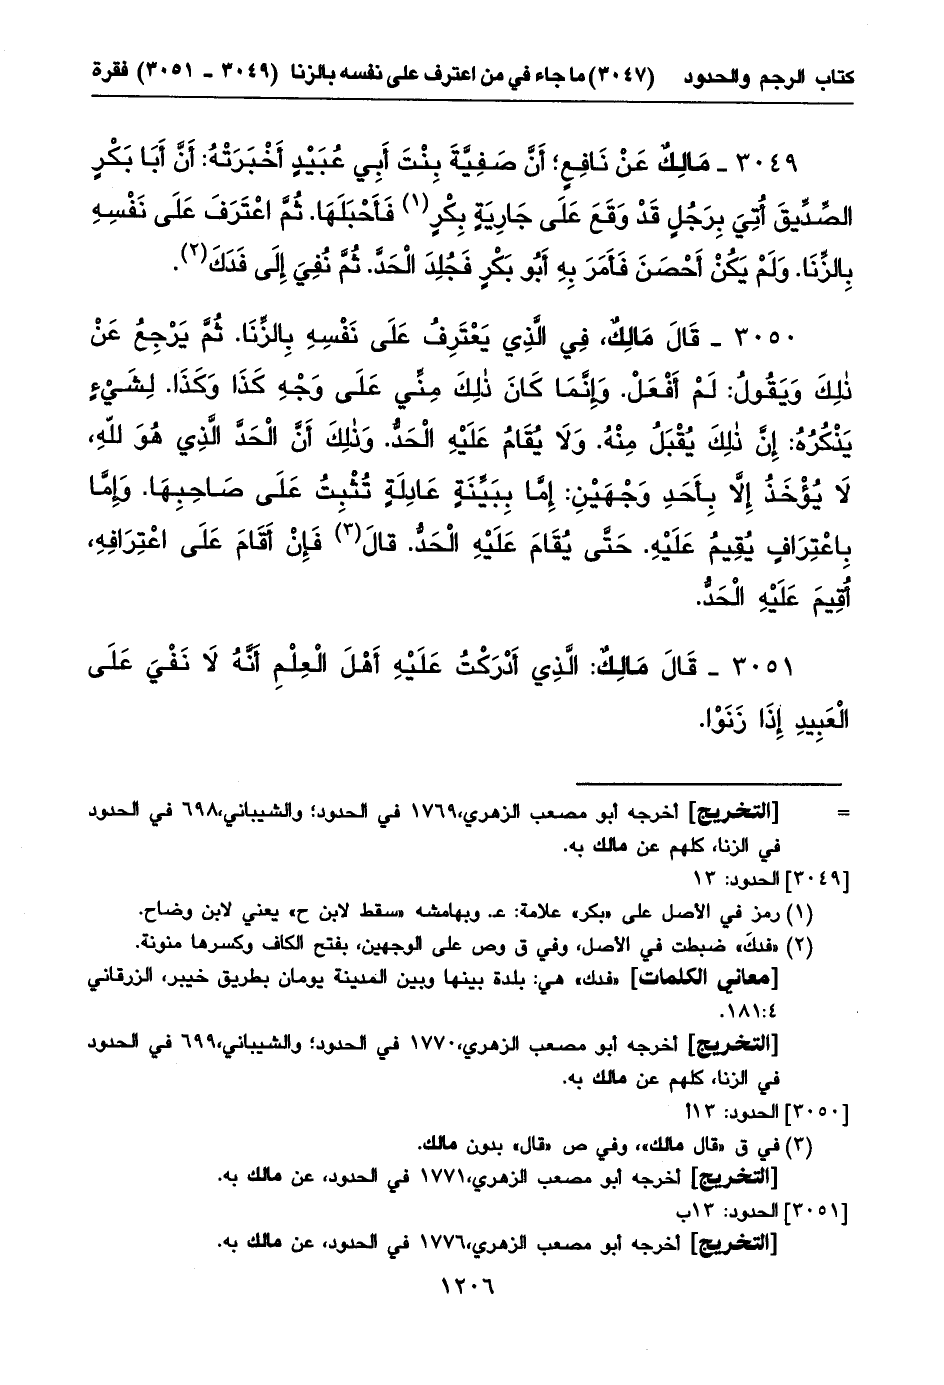 كتاب الرجم والحدود (٣٠٤٧) ما جاء في من اعترف على نفسه بالزنا (٣٠٤٩ - ٣٠٥١) فقرة
٣٠٤٩ - مَالِكٌ عَنْ نَافِعٍ؛ أَنَّ صَفِيَّةَ بِنْتَ أَبِي عُبَيْدٍ أَخْبَرَتْهُ: أَنَّ أَبَا بَكْرٍ
الصِّدِّيقَ أُتِيَ بِرَجُلٍ قَدْ وَقَعَ عَلَى جَارِيَةٍ بِكْرٍ(١) فَأَحْبَلَهَا. ثُمَّ اعْتَرَفَ عَلَى نَفْسِهِ
بِالزِّنَا. وَلَمْ يَكُنْ أَحْصَنَ فَأَمَرَ بِهِ أَبُو بَكْرٍ فَجُلِدَ الْحَدَّ. ثُمَّ نُفِيَ إِلَى فَدَكَ(٢).
٣٠٥٠ - قَالَ مَالِكٌ، فِي الَّذِي يَعْتَرِفُ عَلَى نَفْسِهِ بِالزِّنَا. ثُمَّ يَرْجِعُ عَنْ
ذٰلِكَ وَيَقُولُ: لَمْ أَفْعَلْ. وَإِنَّمَا كَانَ ذٰلِكَ مِنِّي عَلَى وَجْهِ كَذَا وَكَذَا. لِشَيْءٍ
يَذْكُرُهُ: إِنَّ ذٰلِكَ يُقْبَلُ مِنْهُ. وَلَا يُقَامُ عَلَيْهِ الْحَدُّ. وَذٰلِكَ أَنَّ الْحَدَّ الَّذِي هُوَ لله،
لَا يُؤْخَذُ إِلَّا بِأَحَدِ وَجْهَيْنِ: إِمَّا بِبَيِّنَةٍ عَادِلَةٍ تُثْبِتُ عَلَى صَاحِبِهَا. وَإِمَّا
بِاعْتِرَافٍ يُقِيمُ عَلَيْهِ. حَتَّى يُقَامَ عَلَيْهِ الْحَدُّ. قالَ(٣) فَإِنْ أَقَامَ عَلَى اعْتِرَافِهِ،
أُقِيمَ عَلَيْهِ الْحَدُّ.
٣٠٥١ - قَالَ مَالِكٌ: الَّذِي أَدْرَكْتُ عَلَيْهِ أَهْلَ الْعِلْمِ أَنَّهُ لَا نَفْيَ عَلَى
الْعَبِيدِ إِذَا زَنَوْا.
= [التخريج] أخرجه أبو مصعب الزهري،١٧٦٩ في الحدود؛ والشيباني،٦٩٨ في الحدود
في الزنا، كلهم عن مالك به.
[٣٠٤٩] الحدود: ١٣
(١) رمز في الأصل على «بكر» علامة: عـ. وبهامشه «سقط لابن ح» يعني لابن وضاح.
(٢) «فدك» ضبطت في الأصل، وفي ق وص على الوجهين، بفتح الكاف وكسرها منونة.
[معاني الكلمات] «فدك» هي: بلدة بينها وبين المدينة يومان بطريق خيبر، الزرقاني
٤:١٨١.
[التخريج] أخرجه أبو مصعب الزهري،١٧٧٠ في الحدود؛ والشيباني،٦٩٩ في الحدود
في الزنا، كلهم عن مالك به.
[٣٠٥٠] الحدود: ١٣أ
(٣) في ق «قال مالك»، وفي ص «قال» بدون مالك.
[التخريج] أخرجه أبو مصعب الزهري،١٧٧١ في الحدود، عن مالك به.
[٣٠٥١] الحدود: ١٣ب
[التخريج] أخرجه أبو مصعب الزهري،١٧٧٦ في الحدود، عن مالك به.
١٢٠٦